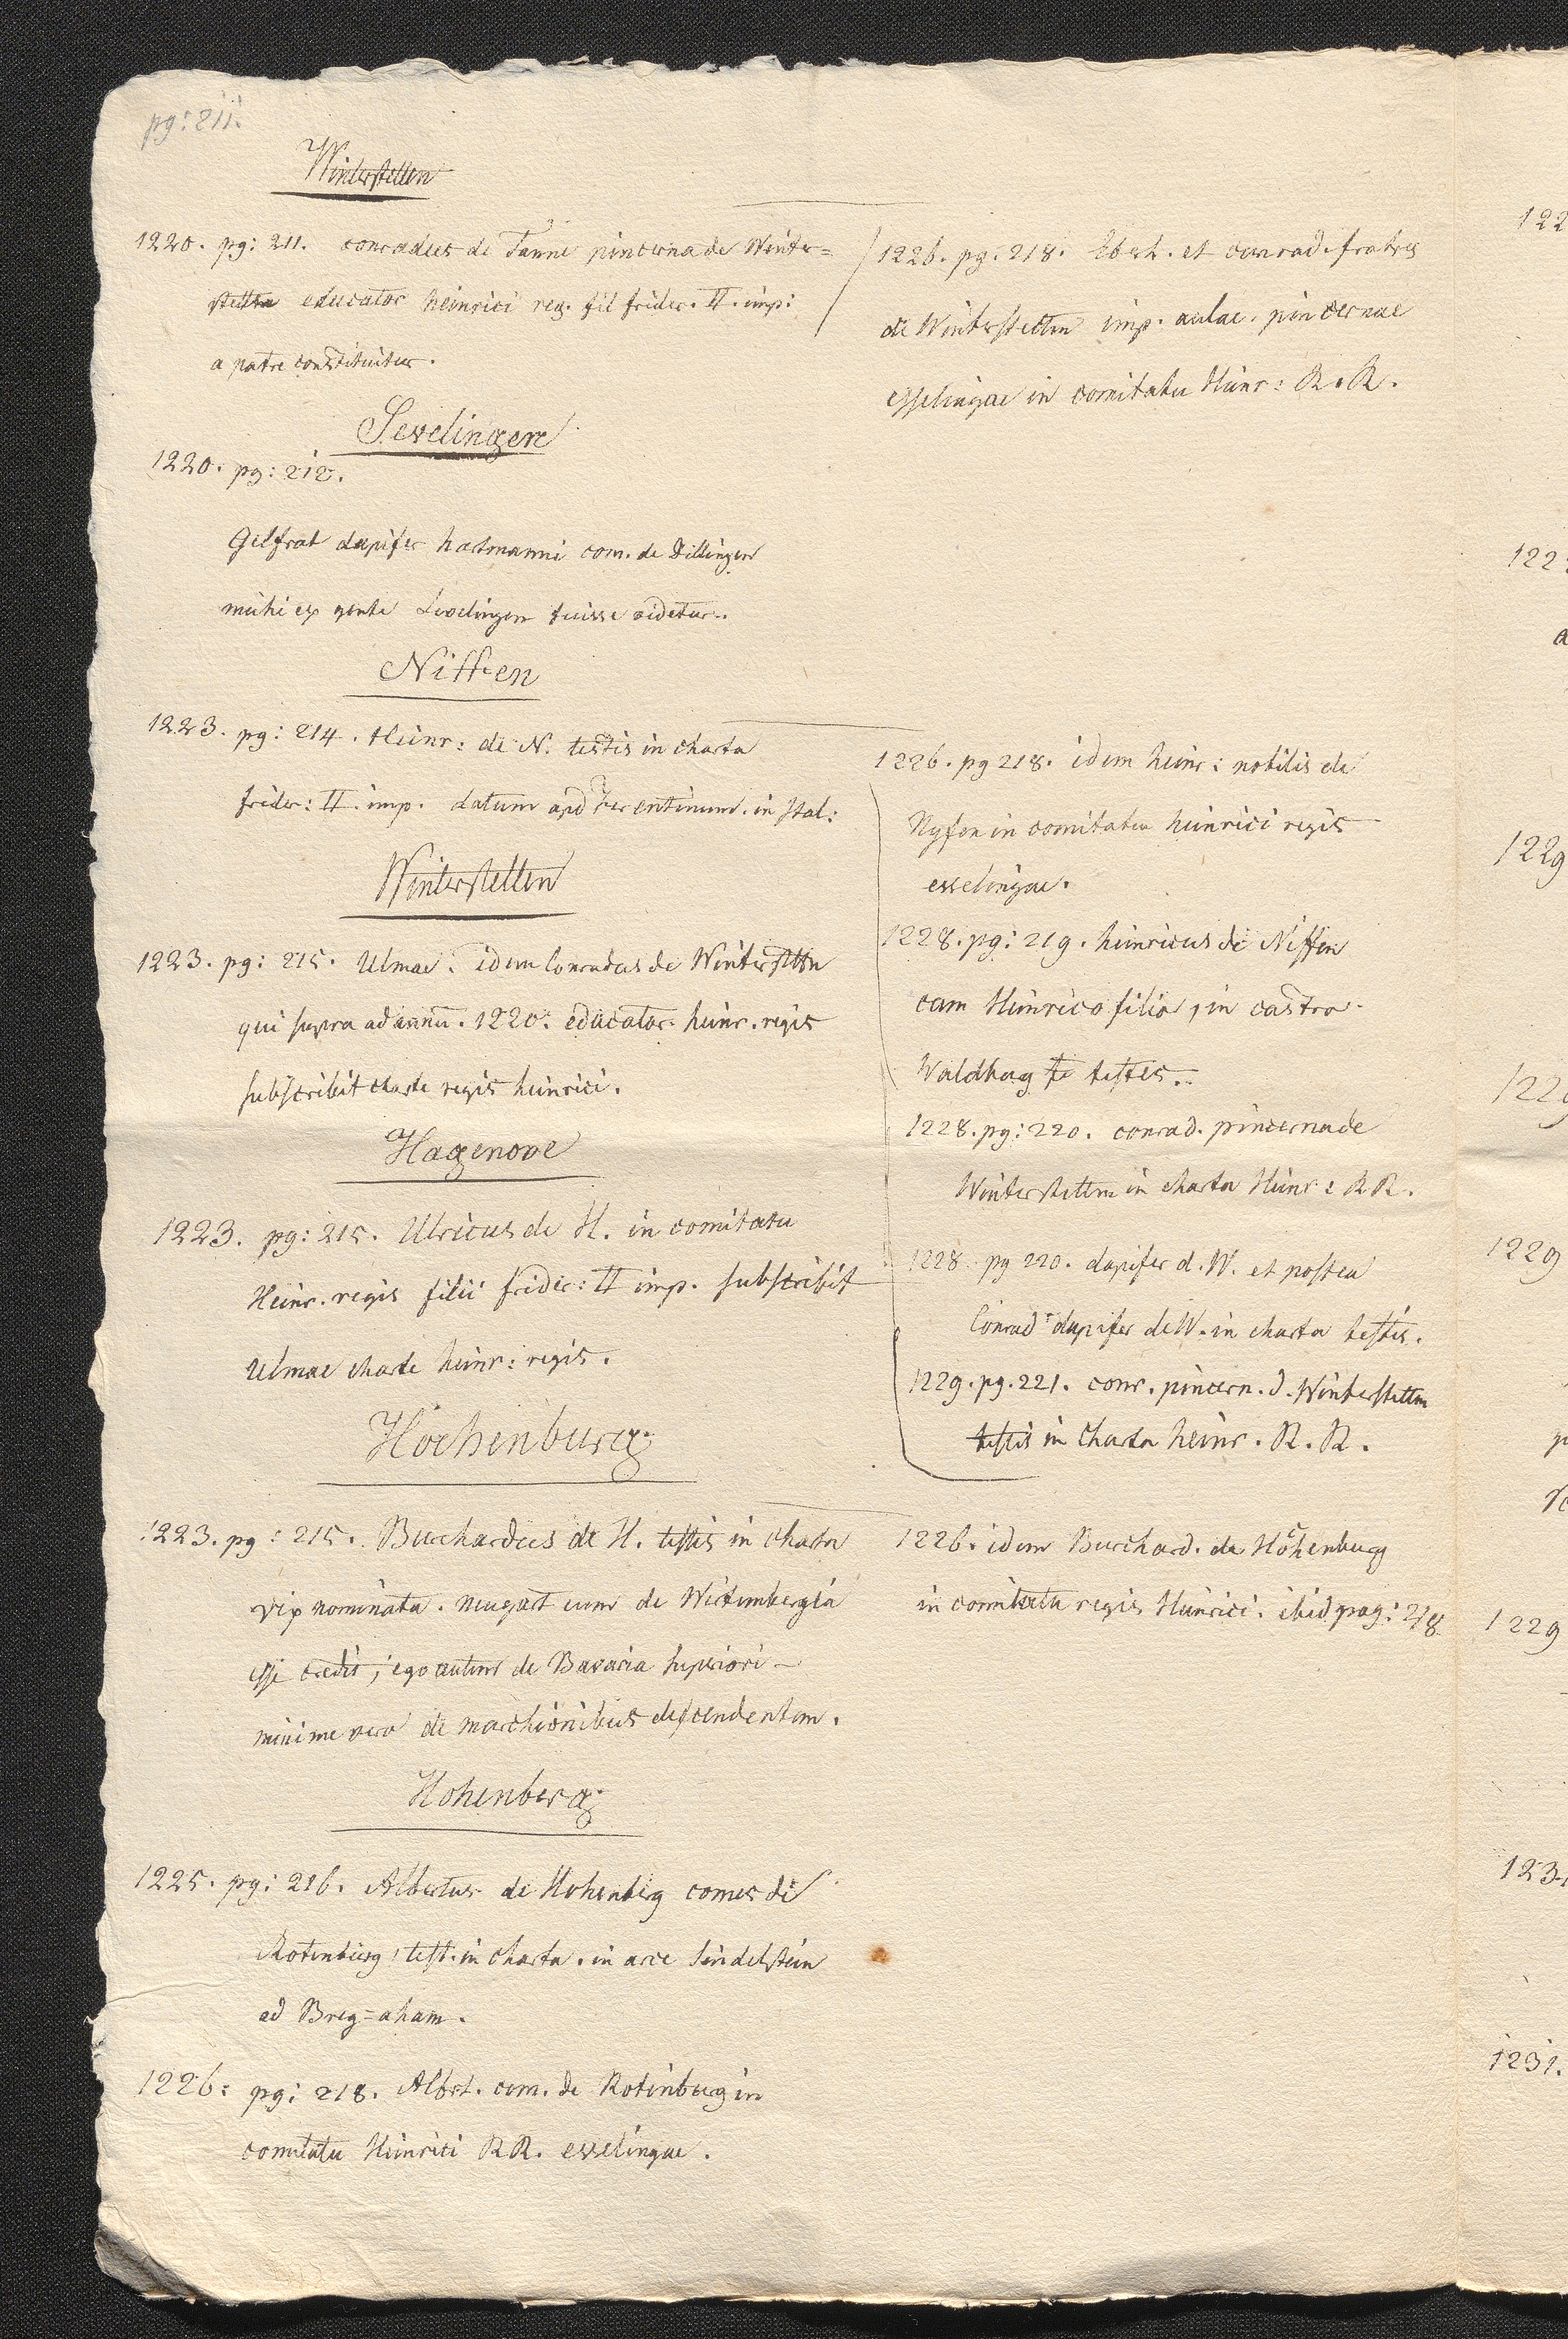 pg: 211.
Winterstetten
1220. pg: 211. conradus de Tanne pincerna de Winter=
stettn educator heinrici reg. fil frider. II. imp:
a patre constituitur.
Sevelingen
1220. pg: 212.
Gelfrat dapifer hartmanni com. de Dillingen
mihi ex gente Sevelingen fuisse videtur.
Niffen
1223. pg: 214. Heinr: de N. testis in charta
frider: II. imp. datum apd ferentinum. in Ital:
Winterstetten
1223. pg: 215. Ulmae. idem Conradus de Winterstettn
qui supra ad annu. 1220. educator heinr. regis
subscribit charte regis heinrici.
Hagenove
1223. pg: 215. Ulricus de H. in comitatu
Heinr. regis filii frider: II imp. subscribit
Ulmae charte heinr: regis.
Hochenburg
1223. pg: 215. Burchardus de H. testis in charta
vix nominata. neugart eum de Wirtembergia
esse credit, ego autem de Bavaria superiori
minime vero de marchionibus descendentem.
Hohenberg
1225. pg: 216. Albertus de Hohenberg comes de
Rotenburg, test. in charta. in arce Sindelstein
ad Breg=aham.
1226: pg: 218. Albrt. com. de Rotinburg in
comitatu Heinrici RR. esselingae.
1226. pg: 218. Eberh. et conrad. fratres
de Winterstettn imp. aulae. pincernae
esselingae in comitatu Heinr: R. R.
1226. pg 218. idem heinr: nobilis de
Nyfen in comitatu heinrici regis
esselingae.
1228. pg: 219. heinricus de Niffen
cum Heinrico filio, in castro
Waldburg te testes.
1228. pg: 220. conrad. pincerna de
Winterstettn in charta Heinr: RR.
1228. pg 220. dapifer d. W. et postea
Conrad dapifer de W. in charta testis.
1229. pg. 221. conr. pincern. d. Winterstettn
testis in Charta heinr. R. R.
1226. idem Burchard. de Hochenburg
in comitatu regis Heinrici. ibid pag: 218
122
122
a
1229
122
1229
1229
123
1231.